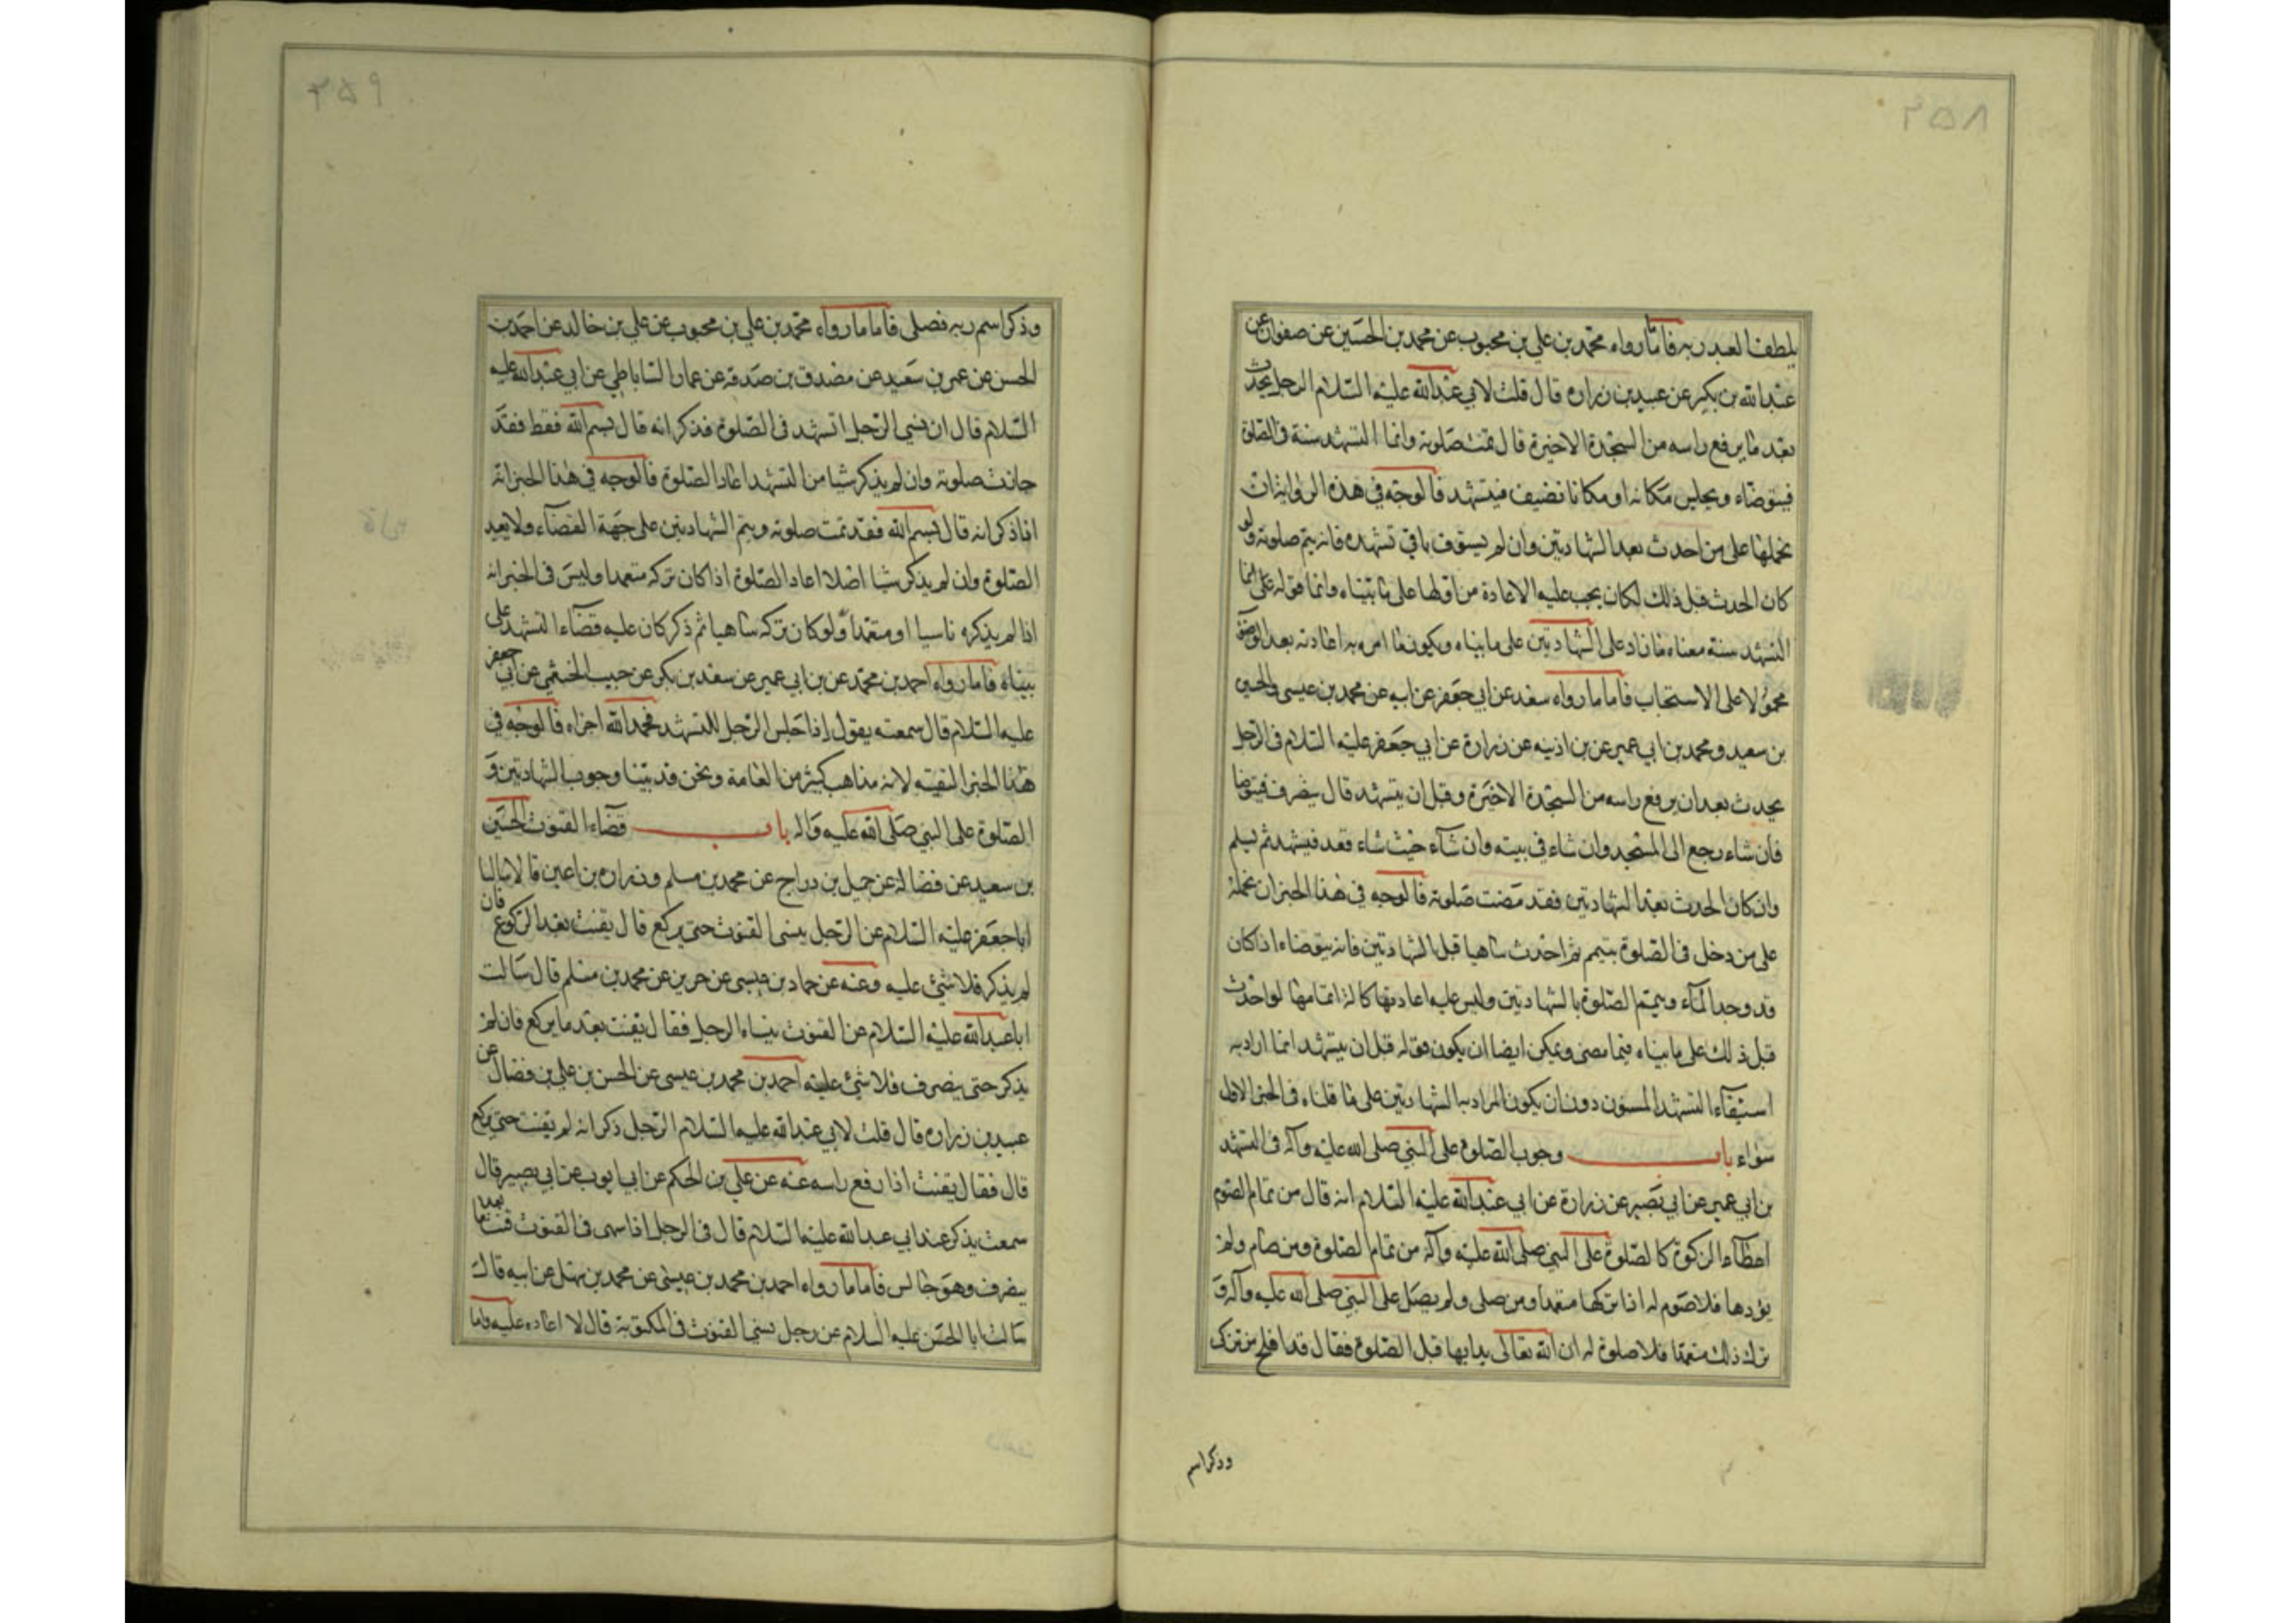 ٢٥٨
يلطفنا لعبد ربه فاما رواه محمد بن علي بن محبوب عن محمد بن الحسين عن صفوان عن
عبد الله بن بكير عن عبيد بن زراره قال قلت لابي عبد الله عليه السلام الرجل يحدث
بعد ما يرفع راسه من السجدة الاخيرة قال تمت صلوته وانما التشهد سنة في الصلوة
فيتوضاء ويجلس مكانه او مكانا نضيف فيتشهد فالوجه في هذه الرواية ان
نحملها على من احدث بعد الشهادتين وان لم يستوف باقي تشهده فانه يتم صلوته ولو
كان الحدث قبل ذلك لكان يجب عليه الاعادة من اولها على ما بيناه وانما قوله على انما
التشهد سنة معناه ما زاد على الشهادتين على ما بيناه ويكون ما امر به اعادته بعد الوضو
محمولا على الاستحباب فاما ما رواه سعد عن ابي جعفر عن ابيه عن محمد بن عيسى والحسين
بن سعيد ومحمد بن ابي عمير عن بن اذينه عن زرارة عن ابي جعفر عليه السلام في الرجل
يحدث بعد ان يرفع راسه من السجدة الاخيرة وقبل ان يتشهد قال ينصرف فيتوضا
فان شاء رجع الى المسجد وان شاء في بيته وان شاء حيث شاء فقعد فيشهد ثم يسلم
وان كان الحدث بعد الشهادتين فقد مضت صلوته فالوجه في هذا الخبر ان نحمله
على من دخل في الصلوة بتيمم ثم احدث ساهيا قبل الشهادتين فانه يتوضاء اذا كان
قد وجد الماء ويتم الصلوة بالشهادتين وليس عليه اعادتها كما له اتمامها لو احدث
قبل ذلك على ما بيناه فيما مضى ويمكن ايضا ان يكون قوله قبل ان يتشهد انما اراد به
استيفاء التشهد المسنون دون ان يكون المراد به الشهادتين على ما قلناه في الخبر الاول
سواء باب وجوب الصلوة على النبي صلى الله عليه وآله في التشهد
بن ابي عمير عن ابي بصير عن زرارة عن ابي عبد الله عليه السلام انه قال من تمام الصوم
اعطاء الزكوة كالصلوة على النبي صلى الله عليه وآله من تمام الصلوة ومن صام ولم
يؤدها فلا صوم له اذا تركها متعمدا ومن صلى ولم يصل على النبي صلى الله عليه وآله و
ترك ذلك متعمدا فلا صلوة له ان الله تعالى بدا بها قبل الصلوة فقال قد افلح من تزكى
وذكر اسم
٢٥٩
وذكر اسم ربه فصلى فاما ما رواه محمد بن علي بن محبوب عن علي بن خالد عن احمد بن
الحسن عن عمر بن سعيد عن مصدق بن صدقه عن عمار الساباطي عن ابي عبد الله عليه
السلام قال ان نسي الرجل التشهد في الصلوة فذكر انه قال بسم الله فقط فقد
جازت صلوته وان لم يذكر شيا من التشهد اعاد الصلوة فالوجه في هذا الخبر انه
اذا ذكر انه قال بسم الله فقد تمت صلوته ويتم الشهادتين على جهة القضاء ولا يعيد
الصلوة وان لم يذكر شيا اصلا اعاد الصلوة اذا كان تركه متعمدا وليس في الخبر انه
اذا لم يذكره ناسيا او متعمدا ولو كان تركه ساهيا ثم ذكر كان عليه قضاء التشهد على
بيناه فاما رواه احمد بن محمد عن بن ابي عمير عن سعد بن بكر عن حبيب الخثعمي عن ابي جعفر
عليه السلام قال سمعته يقول اذا جلس الرجل للتشهد فحمد الله اجزاه فالوجه في
هذا الخبر التقيه لانه مذاهب كثير من العامة ونحن قد بينا وجوب الشهادتين و
الصلوة على النبي صلى الله عليه واله باب قضاء القنوت الحسين
بن سعيد عن فضاله عن جميل بن دراج عن محمد بن مسلم وزراره بن اعين قالا سالنا
ابا جعفر عليه السلام عن الرجل ينسى القنوت حتى يركع قال يقنت بعد الركوع فان
لم يذكر فلا شيئ عليه وعنه عن حماد بن عيسى عن حريز عن محمد بن مسلم قال سالت
ابا عبد الله عليه السلام عن القنوت ينساه الرجل فقال يقنت بعد ما يركع فان لم
يذكر حتى ينصرف فلا شئ عليه احمد بن محمد بن عيسى عن الحسن بن علي بن فضال عن
عبيد بن زراره قال قلت لابي عبد الله عليه السلام الرجل ذكر انه لم يقنت حتى يركع
قال فقال يقنت اذا رفع راسه عنه عن علي بن الحكم عن ابي ايوب عن ابي بصير قال
سمعت يذكر عند ابي عبد الله عليه السلام قال في الرجل اذا سهى في القنوت قنت بعد ما
ينصرف وهو جالس فاما ما رواه احمد بن محمد بن عيسى عن محمد بن سهل عن ابيه قال
سالت ابا الحسن عليه السلام عن رجل نسي القنوت في المكتوبة قال لا اعاده عليه فاما